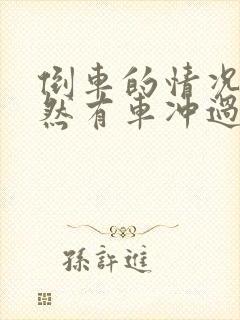 倒車的情况
然有車冲過
孫許進